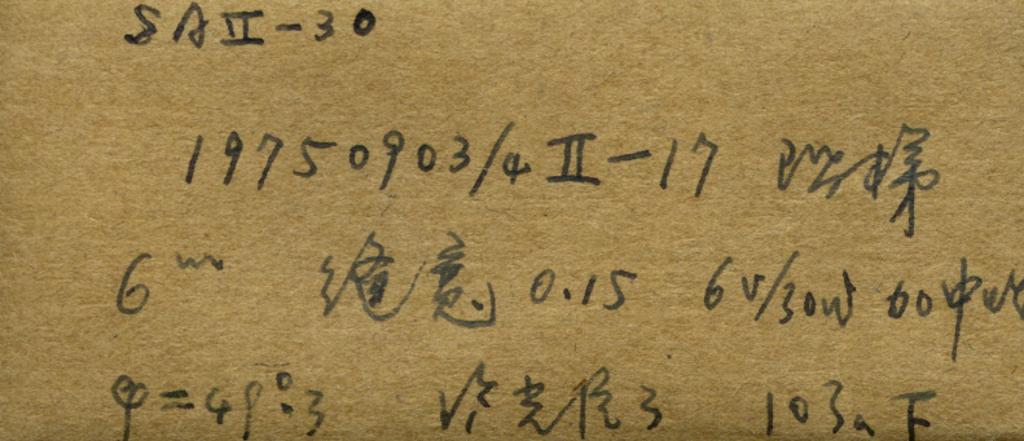 SAII-30
19750903/4 II-17 阶梯
6ᵐ 缝宽 0.15 6V/30W 60中性
φ=49°.3 冷光径3 103a下